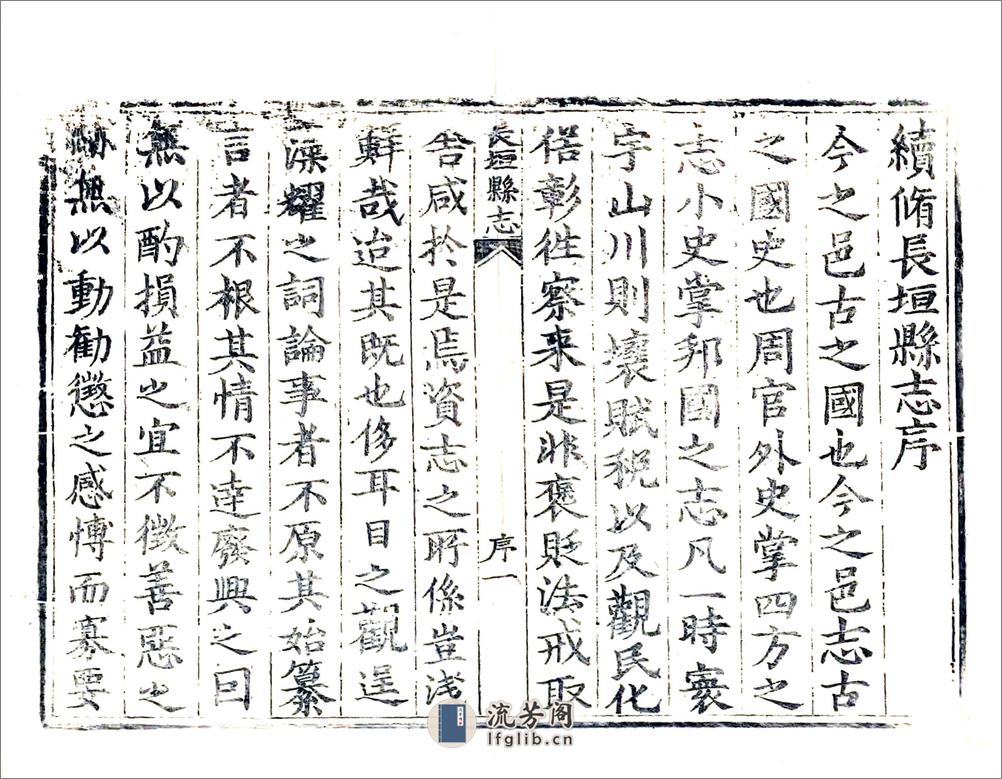 續脩長垣縣志序
今之邑古之國也今之邑志古
之國史也周官外史掌四方之
志小史掌邦國之志凡一時寰
宇山川則壤賦税以及觀民化
俗彰徃察来是非褒貶法戒取
長垣縣志
序一
舍咸扵是焉資志之所係豈浅
鮮哉迨其既也侈耳目之觀逞
藻耀之詞論事者不原其始纂
言者不根其情不達廢興之由
無以酌損益之宜不徴善惡之
無以動勸懲之感愽而寡要
流芳阁
lfglib.cn